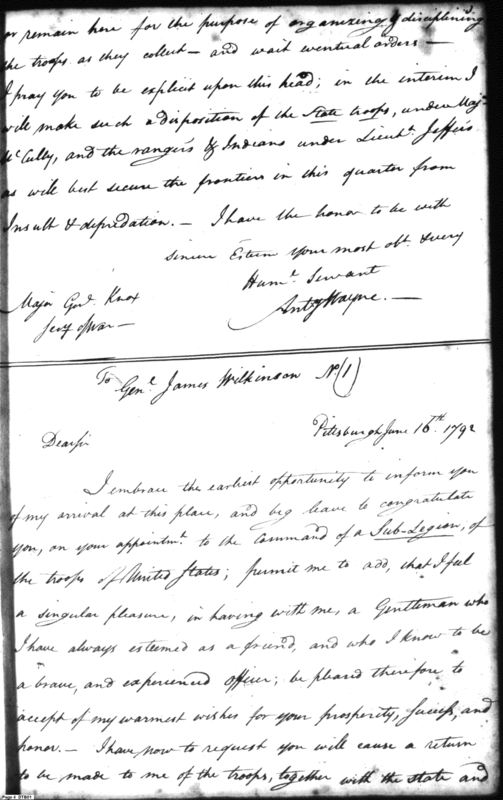 or remain here for the purpose of organizing & disciplining
the troops as they collect — and wait eventual orders —
I pray you to be explicit upon this head; in the interim I
will make such a disposition of the State troops, under Majr.
Mc.Cully, and the rangers & Indians under Lieut. Jeffers
as will best secure the frontiers in this quarter from
Insult & depredation. — I have the honor to be with
sincere Esteem your most obt. & very
Huml. Servant
Anty Wayne. —
Major Genl. Knox
Secy of War —
To Genl. James Wilkinson No. (1)
Pittsburgh June 16th. 1792
Dear Sir
I embrace the earliest opportunity to inform you
of my arrival at this place, and beg leave to congratulate
you, on your appointmt. to the Command of a Sub-Legion, of
the troops of United States; permit me to add, that I feel
a singular pleasure, in having with me, a Gentleman who
I have always esteemed as a friend, and who I know to be
a brave, and experienced officer; be pleased therefore to
accept of my warmest wishes for your prosperity, success, and
honor. — I have now to request you will cause a return
to be made to me of the troops, together with the state and